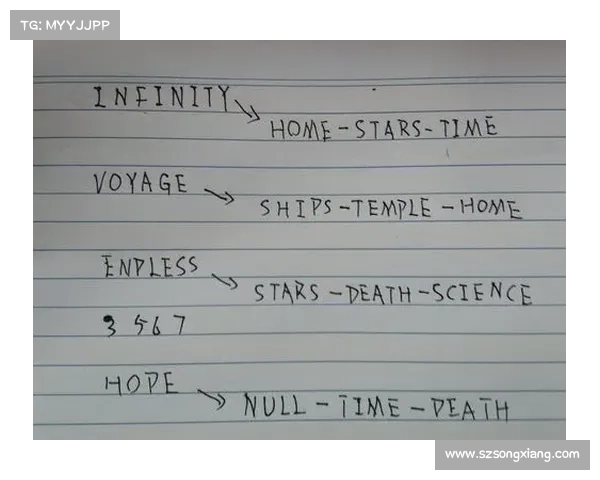 TG: MYYJJPP
INFINITY
HOME-STARS-TIME
VOYAGE
SHIPS-TEMPLE-HOME
ENDLESS
STARS-DEATH-SCIENCE
3 5 6 7
HOPE
NULL-TIME-DEATH
www.szsongxiang.com